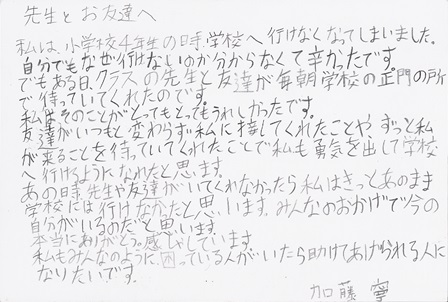 先生とお友達へ
私は、小学校4年生の時、学校へ行けなくなってしまいました。
自分でもなぜ行けないのか分からなくて辛かったです。
でもある日、クラスの先生と友達が毎朝学校の正門の所
で待っていてくれたのです。
私はそのことがとってもとってもうれしかったです。
友達がいつもと変わらず私に接してくれたことや、ずっと私
が来ることを待っていてくれたことで私も勇気を出して学校
へ行けるようになれたと思います。
あの日時、先生や友達がいてくれなかったら私はきっとあのまま
学校には行けなかったと思います。みんなのおかげで今の
自分がいるのだと思います。
本当にありがとう。感しゃしています。
私もみんなのように、困っている人がいたら助けてあげられる人に
なりたいです。
加藤寧